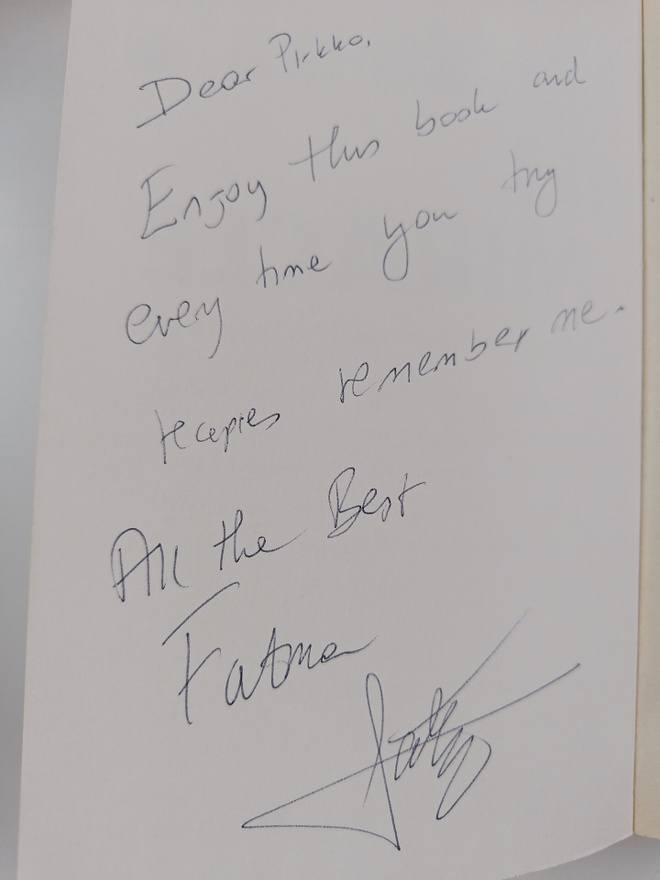 Dear Pirkko,
Enjoy this book and
every time you try
recepies remember me.
All the Best
Fatma